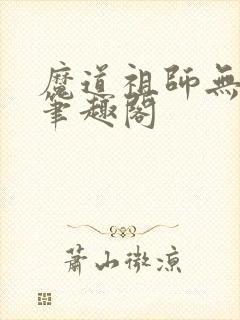 魔道祖師無
筆趣閣
蕭山微涼